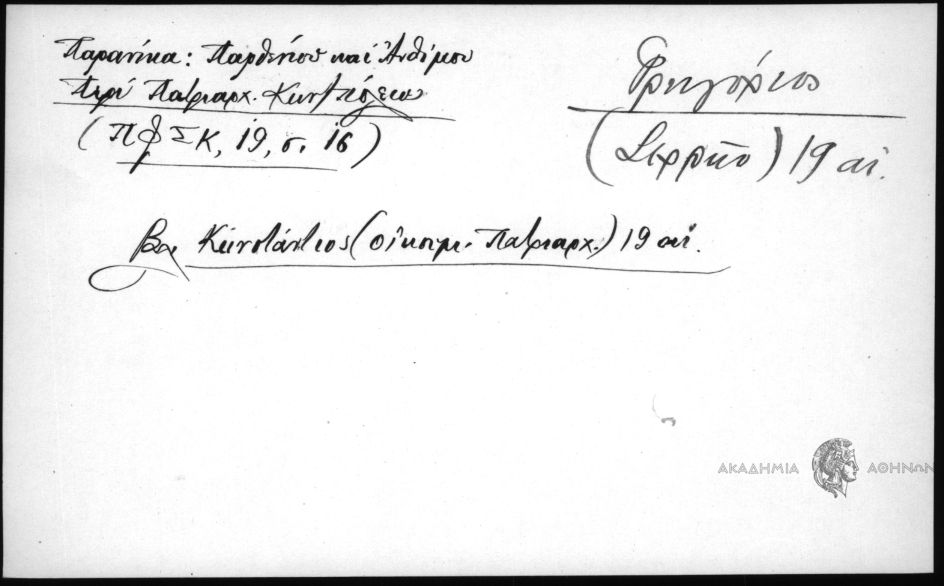 Παρανίκα: Παρθενίου καὶ Ἀνθίμου
Περὶ Πατριαρχ. Κων/πόλεως
(ΠΦΣΚ, 19, σ. 16)
Γρηγόριος
(Σερρῶν) 19 αἰ.
βλ Κωνστάντιος (οἰκουμ. Πατριαρχ.) 19 αἰ.
ΑΚΑΔΗΜΙΑ ΑΘΗΝΩΝ